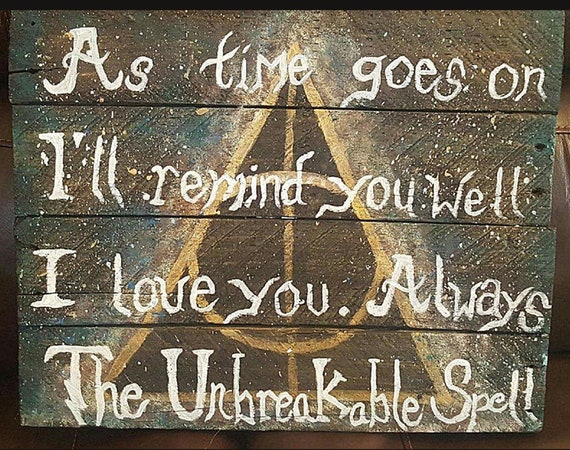 As time goes on
I'll remind you well
I love you. Always
The Unbreakable Spell